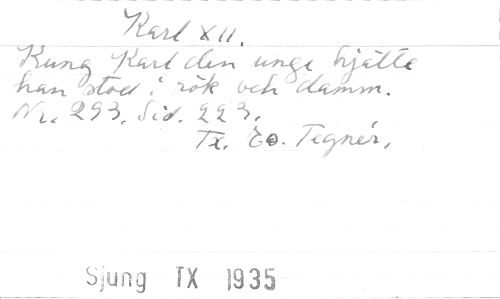 Karl XII.
Kung Karl den unge hjälte
han stod i rök och damm.
Nr. 293. Sid. 223.
Tx. Es. Tegnér.
Sjung TX 1935